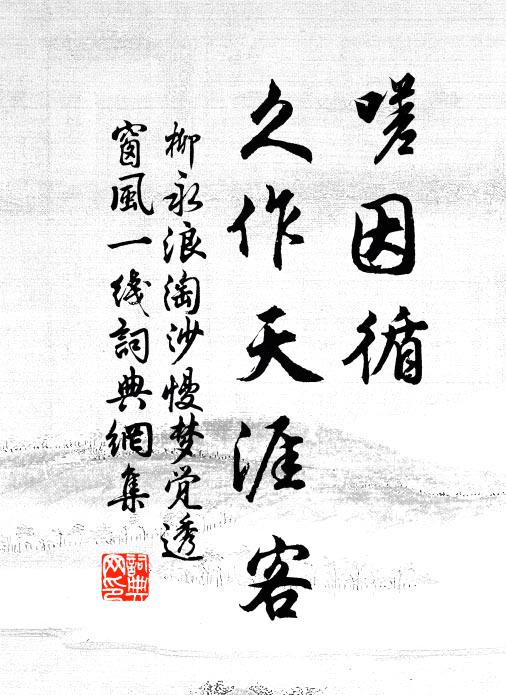 嗟因循
久作天涯客
柳永浪淘沙慢梦觉透
窗風一线詞典網集
詞典
网印